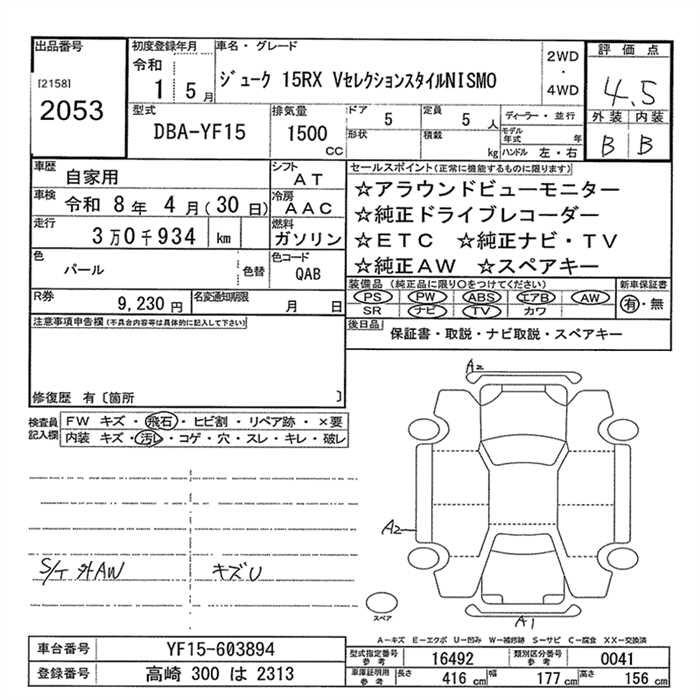 出品番号
[2158]
2053
初度登録年月
令和
1 5月
車名・グレード
ジューク 15RX VセレクションスタイルNISMO
2WD
・
4WD
評価点
4.5
外装 内装
B B
型式
DBA-YF15
排気量
1500
CC
ドア 5
形状
定員 5 人
積載 kg
ディーラー・並行
モデル年式 年
ハンドル 左・右
車歴 自家用
車検 令和 8年 4月(30日)
走行 3万0千934 km
色 パール 色替
シフト AT
冷房 AAC
燃料 ガソリン
色コード QAB
R券 9,230円
名変通知期限 月 日
セールスポイント(正常に機能するものに限ります)
☆アラウンドビューモニター
☆純正ドライブレコーダー
☆ETC ☆純正ナビ・TV
☆純正AW ☆スペアキー
装備品 (純正品に限り○をつけてください) 新車保証書
PS PW ABS エアB AW 有・無
SR ナビ TV カワ
後日品 保証書・取説・ナビ取説・スペアキー
注意事項申告欄 (不具合内容等は具体的に記入して下さい)
修復歴 有〔箇所 〕
検査員記入欄
FW キズ・飛石・ヒビ割・リペア跡・×要
内装 キズ・汚レ・コゲ・穴・スレ・キレ・破レ
S/T 外AW キズU
A2
A2
A1
スペア
A−キズ E−エクボ U−凹み W−補修跡 S−サビ C−腐食 XX−交換済
車台番号 YF15-603894
登録番号 高崎 300 は 2313
型式指定番号 参考 16492 類別区分番号 参考 0041
車庫証明用 参考 長さ 416 cm 幅 177 cm 高さ 156 cm